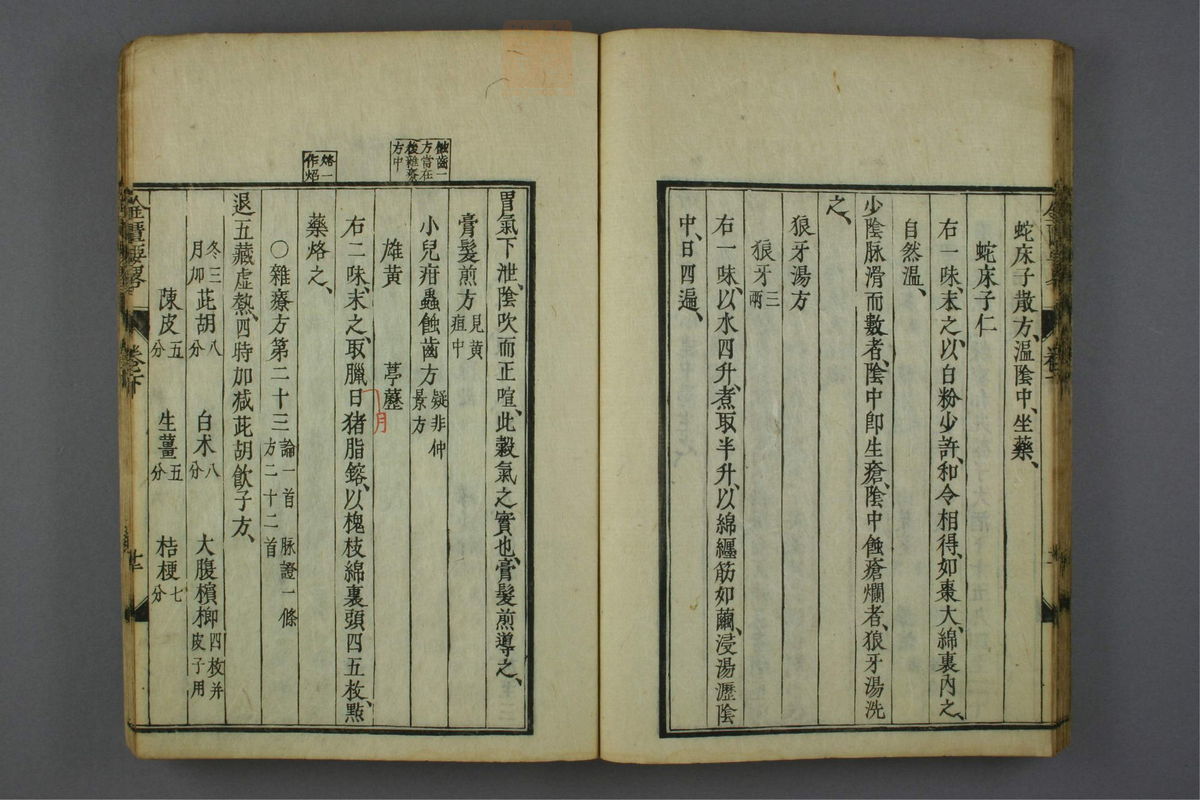 蛇床子散方、溫陰中、坐藥、
蛇床子仁
右一味、末之、以白粉少許、和令相得、如棗大、綿裹內之、
自然溫、
少陰脉滑而數者、陰中卽生瘡、陰中蝕瘡爛者、狼牙湯洗
之、
狼牙湯方
狼牙三兩
右一味、以水四升、煮取半升、以綿纏筋如繭、浸湯瀝陰
中、日四遍、
胃氣下泄、陰吹而正喧、此穀氣之實也、膏髮煎導之、
膏髮煎方見黃疸中
小兒疳蟲蝕齒方疑非仲景方
蝕齒一方當在後雜療方中
雄黃 葶藶
右二味、末之、取臘日猪脂鎔、以槐枝綿裹頭四五枚、點
月
藥烙之、
烙一作炤
○雜療方第二十三論一首 脉證一條方二十二首
退五藏虛熱、四時加減茈胡飮子方、
冬三月加茈胡八分 白朮八分 大腹檳榔四枚并皮子用
陳皮五分 生薑五分 桔梗七分
金匱要畧 卷下